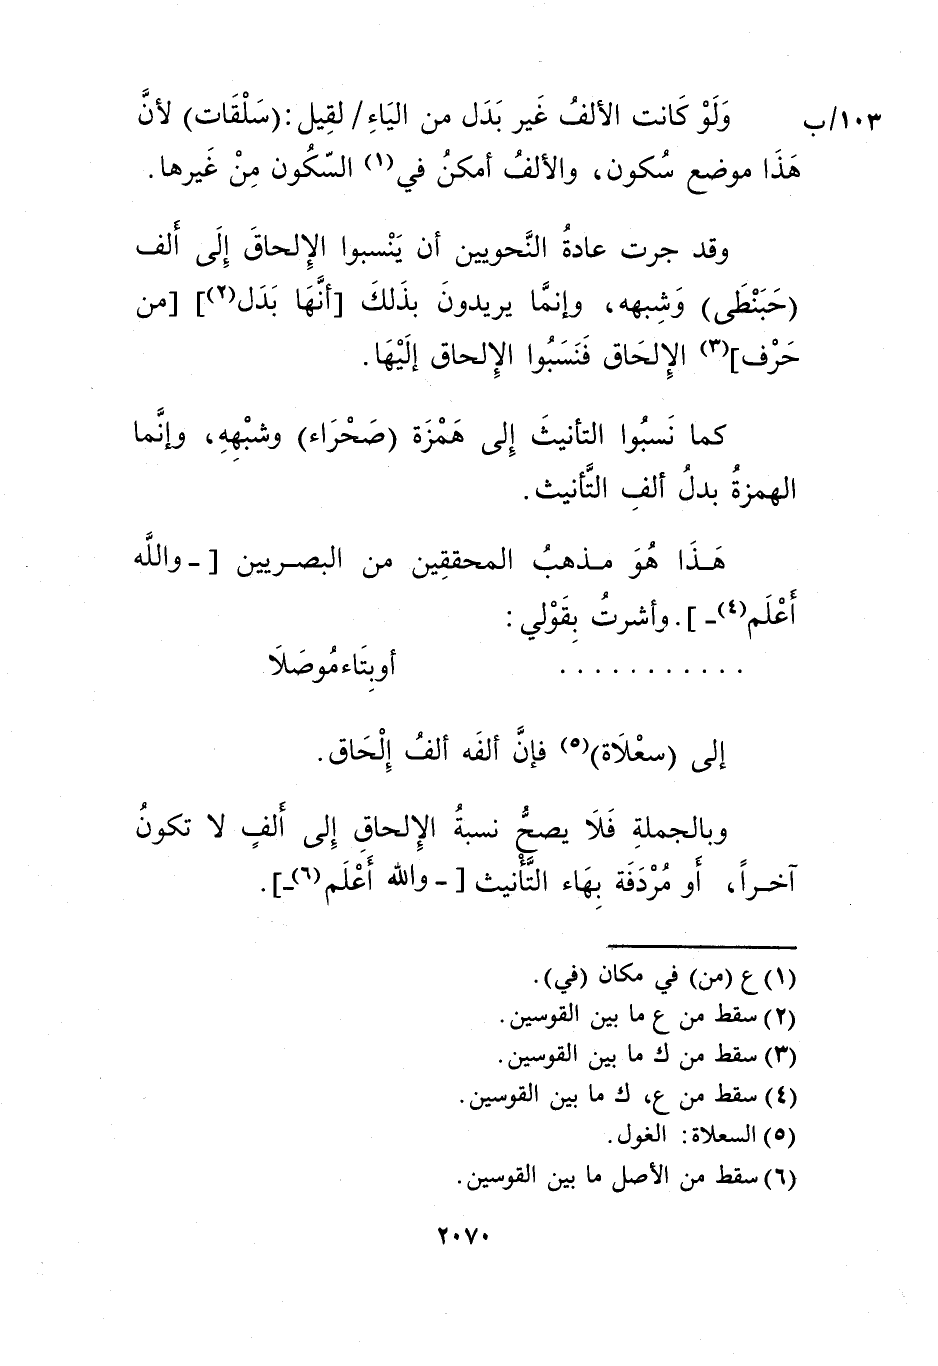 ١٠٣/ب وَلَوْ كَانت الألفُ غَير بَدَل من اليَاءِ/ لقِيل: (سَلْقَات) لأنَّ
هَذَا موضع سُكون، والألفُ أمكنُ في(١) السّكُون مِنْ غَيرها.
وقد جرت عادةُ النَّحويين أن يَنْسبوا الإِلحاقَ إِلَى أَلف
(حَبَنْطَى) وَشِبهه، وإنمَّا يريدونَ بذَلكَ [أنَّهَا بَدَل(٢)] [من
حَرْف](٣) الإِلحَاق فَنَسَبُوا الإِلحاق إلَيْهَا.
كما نَسبُوا التأنيثَ إِلى هَمْزَة (صَحْرَاء) وشبْهِهِ، وإنَّما
الهمزةُ بدلُ ألفِ التَّأنيث.
هَـذَا هُوَ مـذهبُ المحققِين من البصـريين [ـ واللَّه
أَعْلَم(٤)ـ]. وأشرتُ بِقَوْلي:
. . . . . . . . . . . أوبِتَاء مُوصَلَا
إلى (سعْلَاة)(٥) فإنَّ ألفَه ألفُ إلْحَاق.
وبالجملةِ فَلَا يصحُّ نسبةُ الإِلحاقِ إِلى أَلفٍ لا تكونُ
آخـراً، أَو مُرْدَفَة بِهَاء التَّأْنيث [ـ والله أَعْلَم(٦)ـ].
(١) ع (من) في مكان (في).
(٢) سقط من ع ما بين القوسين.
(٣) سقط من ك ما بين القوسين.
(٤) سقط من ع، ك ما بين القوسين.
(٥) السعلاة: الغول.
(٦) سقط من الأصل ما بين القوسين.
٢٠٧٠